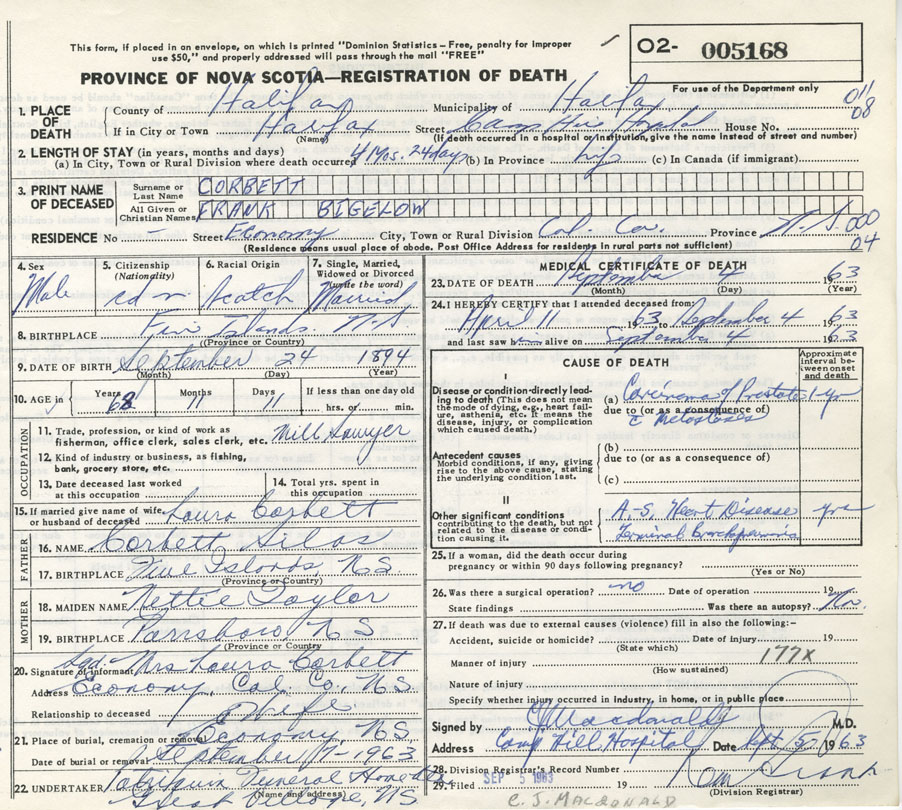 This form, if placed in an envelope, on which is printed "Dominion Statistics – Free, penalty for improper
use $50," and properly addressed will pass through the mail "FREE"
O2- 005168
For use of the Department only
PROVINCE OF NOVA SCOTIA—REGISTRATION OF DEATH
011
08
1. PLACE OF DEATH
County of Halifax Municipality of Halifax
If in City or Town Halifax Street Camp Hill Hospital House No.
(Name) (If death occurred in a hospital or institution, give the name instead of street and number)
2. LENGTH OF STAY (in years, months and days)
(a) In City, Town or Rural Division where death occurred 4 Mos. 24 days (b) In Province life (c) In Canada (if immigrant)
3. PRINT NAME OF DECEASED
Surname or Last Name CORBETT
All Given or Christian Names FRANK BIGELOW
RESIDENCE No — Street Economy City, Town or Rural Division Col. Co. Province N.S. 000
04
(Residence means usual place of abode. Post Office Address for residents in rural parts not sufficient)
4. Sex Male
5. Citizenship (Nationality) cdn
6. Racial Origin Scotch
7. Single, Married, Widowed or Divorced (write the word) Married
8. BIRTHPLACE Five Islands N.S.
(Province or Country)
9. DATE OF BIRTH September 24 1894
(Month) (Day) (Year)
10. AGE in Years 68 Months 11 Days 11 If less than one day old
hrs. or min.
OCCUPATION
11. Trade, profession, or kind of work as
fisherman, office clerk, sales clerk, etc. Mill Sawyer
12. Kind of industry or business, as fishing,
bank, grocery store, etc.
13. Date deceased last worked
at this occupation
14. Total yrs. spent in
this occupation
15. If married give name of wife
or husband of deceased Laura Corbett
FATHER
16. NAME Corbett Silas
17. BIRTHPLACE Five Islands, N.S.
(Province or Country)
MOTHER
18. MAIDEN NAME Nettie Taylor
19. BIRTHPLACE Parrsboro N S
(Province or Country)
20. Signature of informant Sgd. Mrs Laura Corbett
Address Economy, Col. Co., N.S.
Relationship to deceased Wife
21. Place of burial, cremation or removal Economy N.S.
Date of burial or removal September 7-1963
22. UNDERTAKER Funeral Home
(Name and address)
Great Village, N.S.
MEDICAL CERTIFICATE OF DEATH
23. DATE OF DEATH September 4 63
(Month) (Day) (Year)
24. I HEREBY CERTIFY that I attended deceased from:
April 11 1963 to September 4 1963
and last saw him alive on September 4 1963
CAUSE OF DEATH
Approximate interval between onset and death
I
Disease or condition directly lead-
ing to death (This does not mean
the mode of dying, e.g., heart fail-
ure, asthenia, etc. It means the
disease, injury, or complication
which caused death.)
(a) Carcinoma of Prostate 1 yr
due to (or as a consequence of)
c̄ Metastasis
Antecedent causes
Morbid conditions, if any, giving
rise to the above cause, stating
the underlying condition last.
(b)
due to (or as a consequence of)
(c)
II
Other significant conditions
contributing to the death, but not
related to the disease or condi-
tion causing it.
A.-S. Heart Disease yrs
Terminal Bronchopneumonia
25. If a woman, did the death occur during
pregnancy or within 90 days following pregnancy?
(Yes or No)
26. Was there a surgical operation? no Date of operation 19
State findings Was there an autopsy? No.
27. If death was due to external causes (violence) fill in also the following:-
Accident, suicide or homicide? Date of injury 19
(State which)
Manner of injury 177X
(How sustained)
Nature of injury
Specify whether injury occurred in industry, in home, or in public place
Signed by CJ Macdonald M.D.
Address Camp Hill Hospital Date Sept 5 1963
28. Division Registrar's Record Number
29. Filed SEP 5 1963 19
(Division Registrar)
C. J. MACDONALD